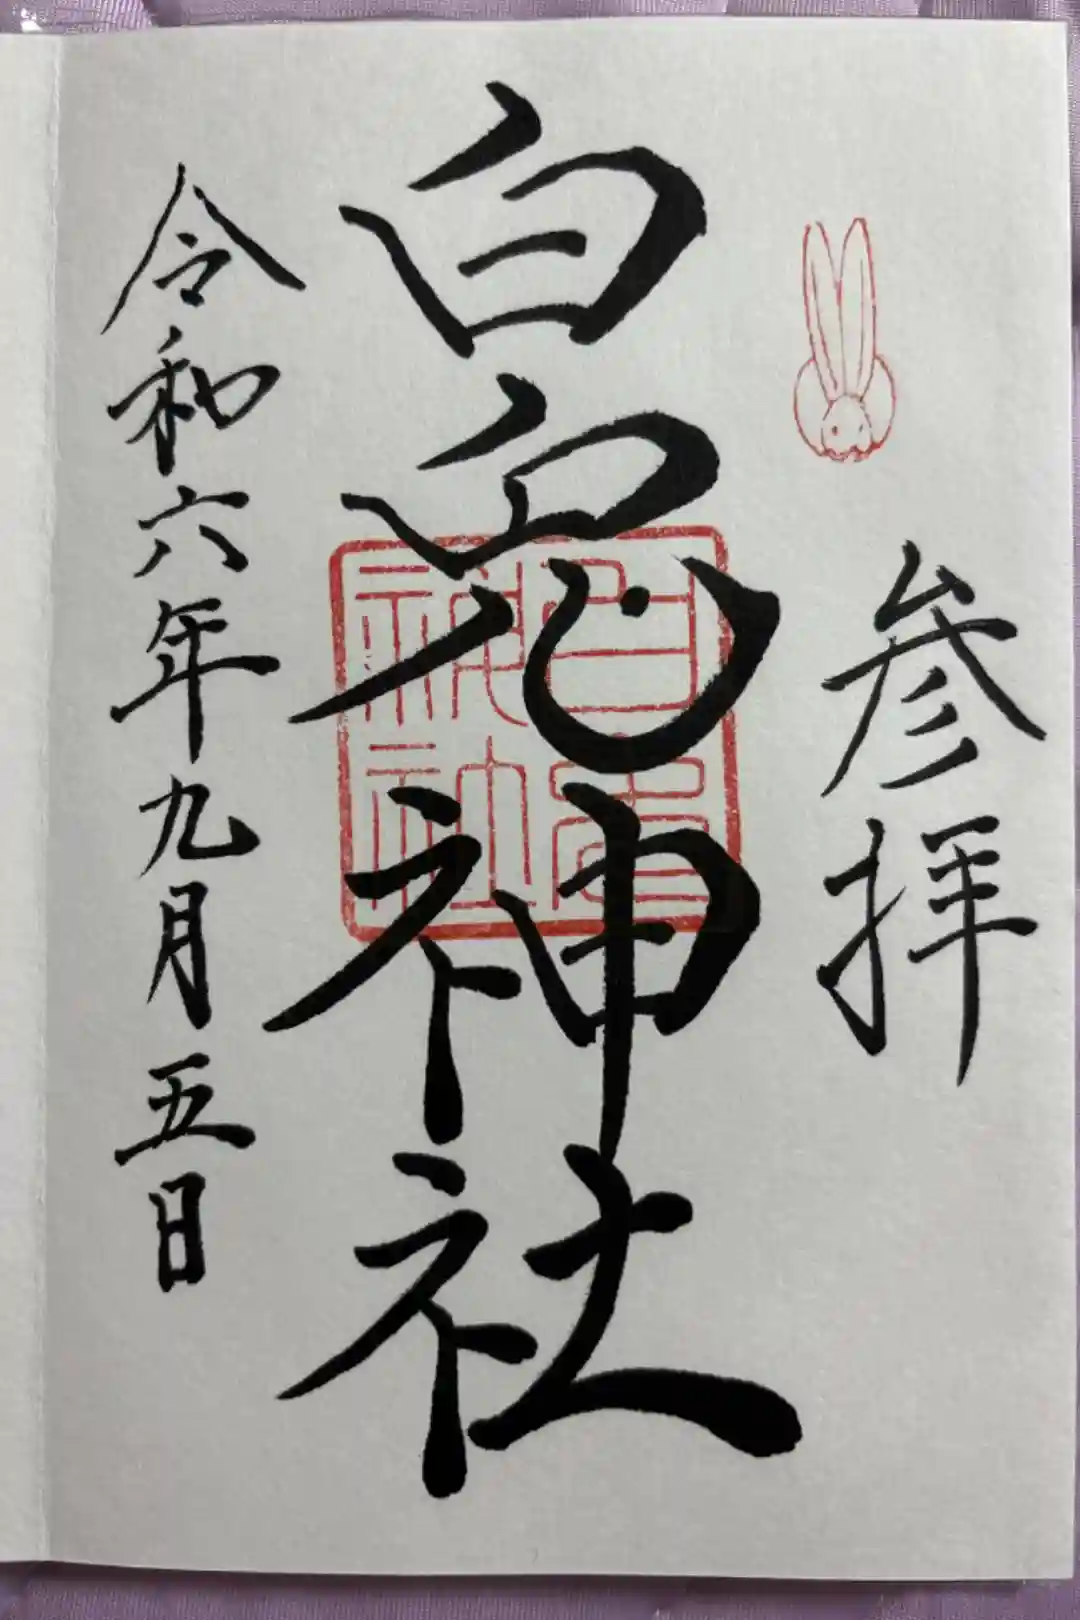 参拝
白兎神社
白兎
神社
令和六年九月五日